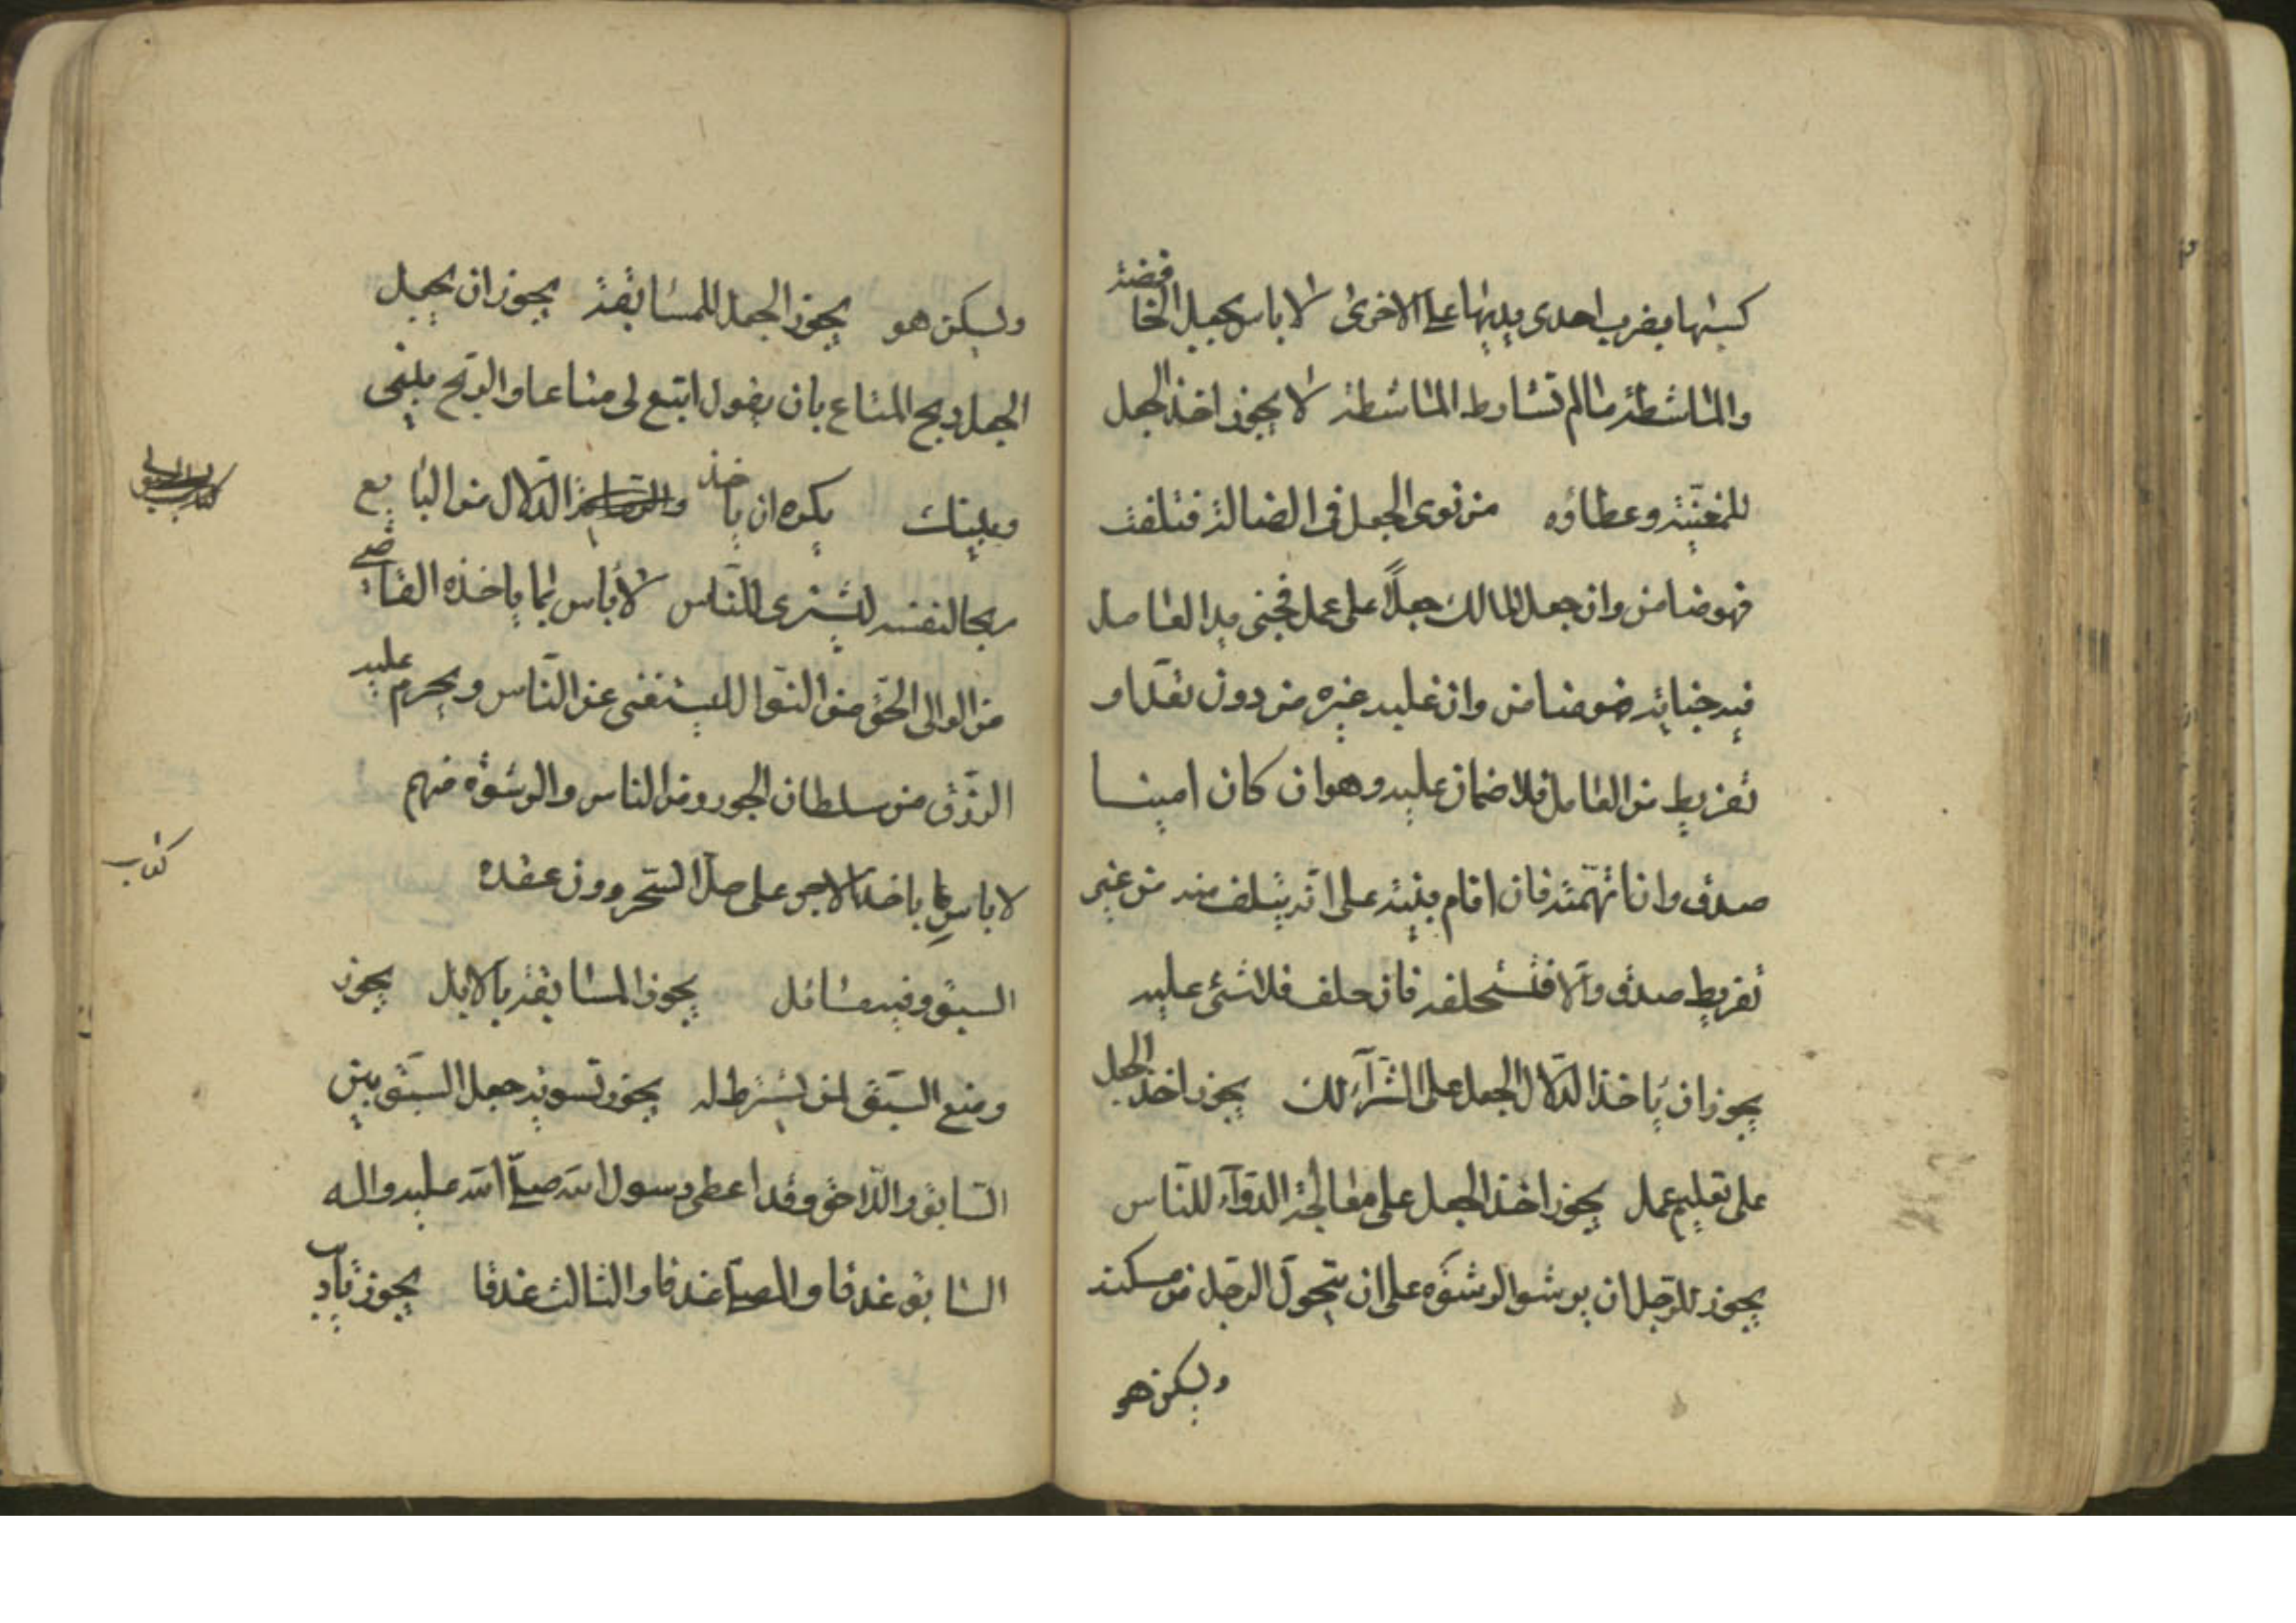 كسبها بضرب احدى يديها على الاخرى لا باس بجعل الخافضة
والماشطة ما لم تشارط الماشطة لا يجوز اخذ الجعل
للمغنية وعطاؤه من نوى الجعل فى الضالة فتلفت
فهو ضامن وان جعل المالك جعلاً على عمل فجنى يد العامل
فيه جناية ضو ضامن وان غليه غيره من دون تعد او
تفريط من العامل فلا ضمان عليه وهو ان كان امينا
صدق وان اتهمته فان اقام بينة على انه يتلف منه من غير
تفريط صدق والا فتستحلفه فان حلف فلا شئ عليه
يجوز ان ياخذ الدلال الجعل على الشرآء لك يجوز اخذ الجعل
على تعليم عمل يجوز اخذ الجعل على معالجة الدوآء للناس
يجوز للرجل ان يرشو الرشوه على ان يتحول الرجل من مسكنه
وليكن هو
وليكن هو يجوز الجعل للمسابقة يجوز ان يجعل
الجعل ربح المتاع بان يقول ابتع لى متاعا والربح بينى
وبينك يكره ان ياخذ الدلال من البايع
ربحا لنفسه ليشترى للناس لا باس بما ياخذه القاضى
من الوالى الحق من النوال ليستغنى عن الناس ويحرم عليه
الرزق من سلطان الجور ومن الناس والرشوه منهم
لا باس بما ياخذ الاجر على حل السحر دون عقده
كتاب
السبق وفيه مسائل يجوز المسابقة بالابل يجوز
ومنع السبق لمن يشترط له يجوز تسويه جعل السبق بين
السابق واللاحق وقد اعطى رسول الله صلى الله عليه واله
السابق عذقا والمصلى عذقا والثالث عذقا يجوز تاديب